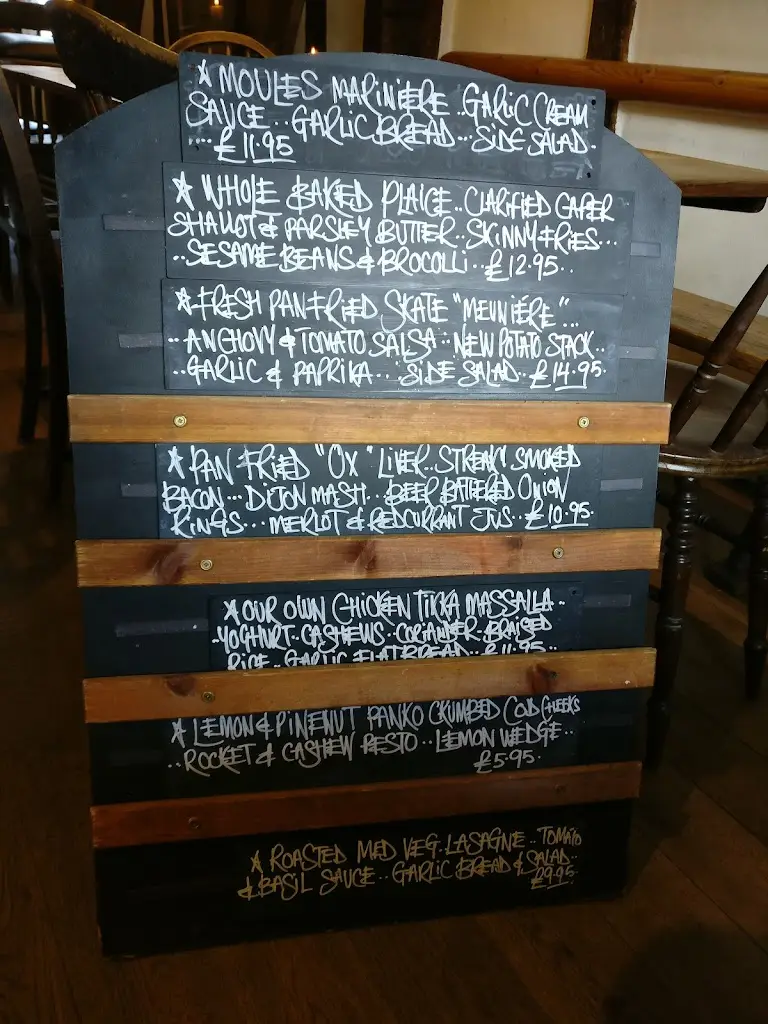 * MOULES MARINIERE.. GARLIC CREAM
SAUCE.. GARLIC BREAD... SIDE SALAD.
.... £11.95
* WHOLE BAKED PLAICE.. CLARIFIED CAPER
SHALLOT & PARSLEY BUTTER.. SKINNY FRIES...
.. SESAME BEANS & BROCOLLI.. £12.95..
* FRESH PAN FRIED SKATE "MEUNIÉRE"...
.. ANCHOVY & TOMATO SALSA.. NEW POTATO STACK..
.. GARLIC & PAPRIKA... SIDE SALAD.. £14.95.
* PAN FRIED "OX" LIVER.. STREAKY SMOKED
BACON... DIJON MASH... BEER BATTERED ONION
RINGS... MERLOT & REDCURRANT JUS.. £10.95.
* OUR OWN CHICKEN TIKKA MASSALLA..
.YOGHURT.. CASHEWS.. CORIANDER.. BRAISED
RICE.. GARLIC FLATBREAD.. £11.95..
* LEMON & PINENUT PANKO CRUMBED COD CHEEKS
.. ROCKET & CASHEW PESTO.. LEMON WEDGE..
£5.95.
* ROASTED MED VEG. LASAGNE.. TOMATO
& BASIL SAUCE.. GARLIC BREAD & SALAD..
£9.95.